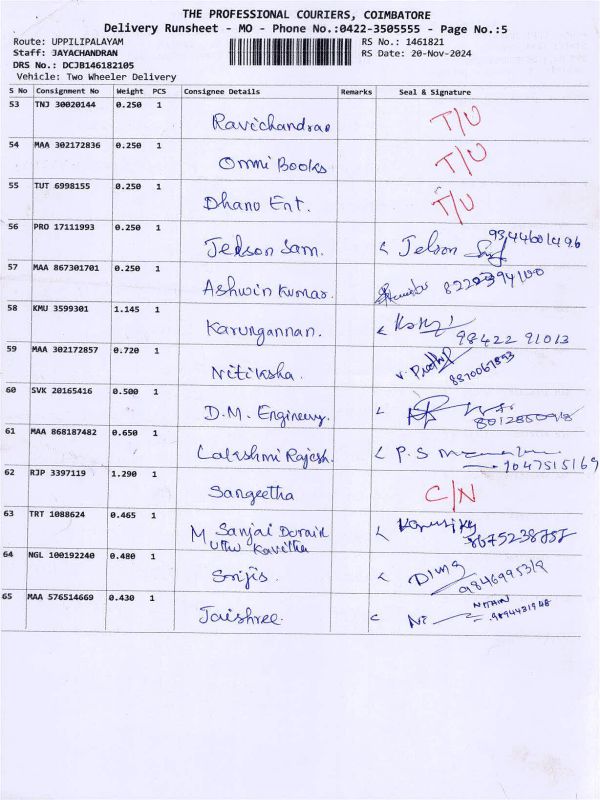 THE PROFESSIONAL COURIERS, COIMBATORE
Delivery Runsheet - MO - Phone No.:0422-3505555 - Page No.:5
Route: UPPILIPALAYAM RS No.: 1461821
Staff: JAYACHANDRAN RS Date: 20-Nov-2024
DRS No.: DCJB146182105
Vehicle: Two Wheeler Delivery
S No Consignment No Weight PCS Consignee Details Remarks Seal & Signature
53 TNJ 30020144 0.250 1 Ravichandran T/U
54 MAA 302172836 0.250 1 Ommi Books T/U
55 TUT 6998155 0.250 1 Dhanu Ent. T/U
56 PRO 17111993 0.250 1 Jedson Sam. Jelson 9344601496
57 MAA 867301701 0.250 1 Ashwin Kumar. 8220394100
58 KMU 3599301 1.145 1 Karungannan. 98422 91013
59 MAA 302172857 0.720 1 Nitiksha. 8870067893
60 SVK 20165416 0.500 1 D.M. Enginery.
61 MAA 868187482 0.650 1 Lakshmi Rajesh. P.S 9047515169
62 RJP 3397119 1.290 1 Sangeetha C/N
63 TRT 1088624 0.465 1 M Sanjai Durain
Uthu Kavitha
64 NGL 100192240 0.480 1 Srijis.
65 MAA 576514669 0.430 1 Jaishree. Ni NITHIN 9894431948